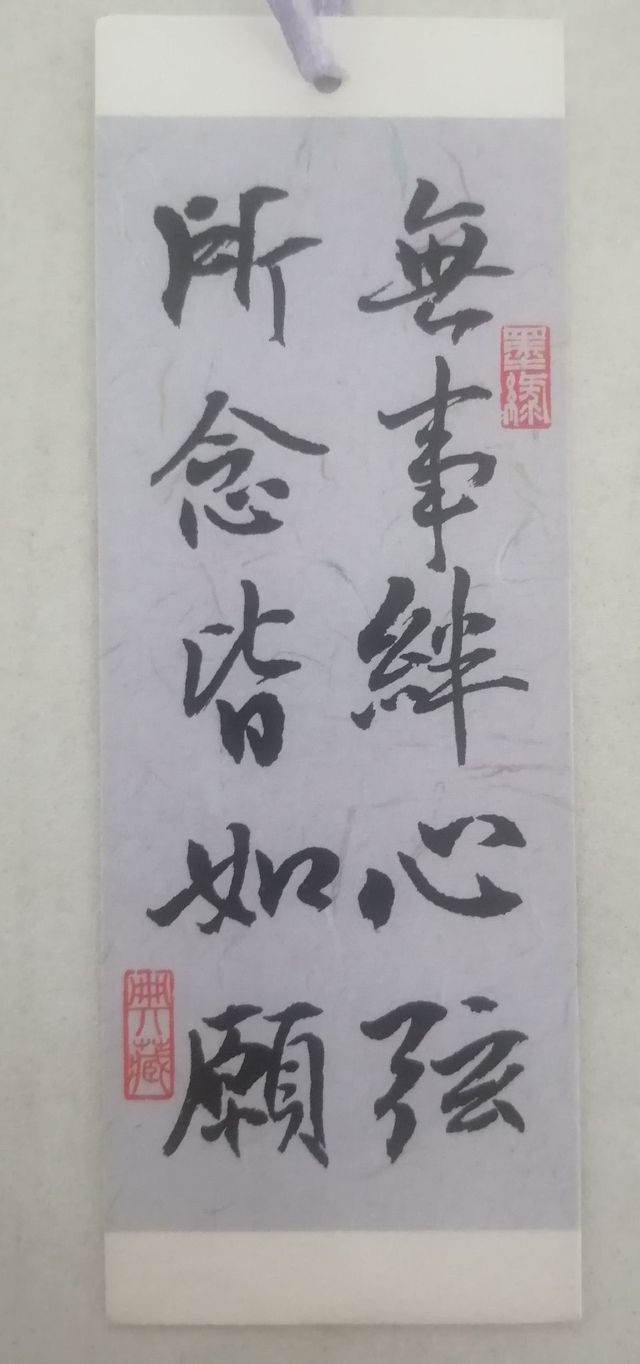 無事絆心弦
所念皆如願
墨缘
典藏